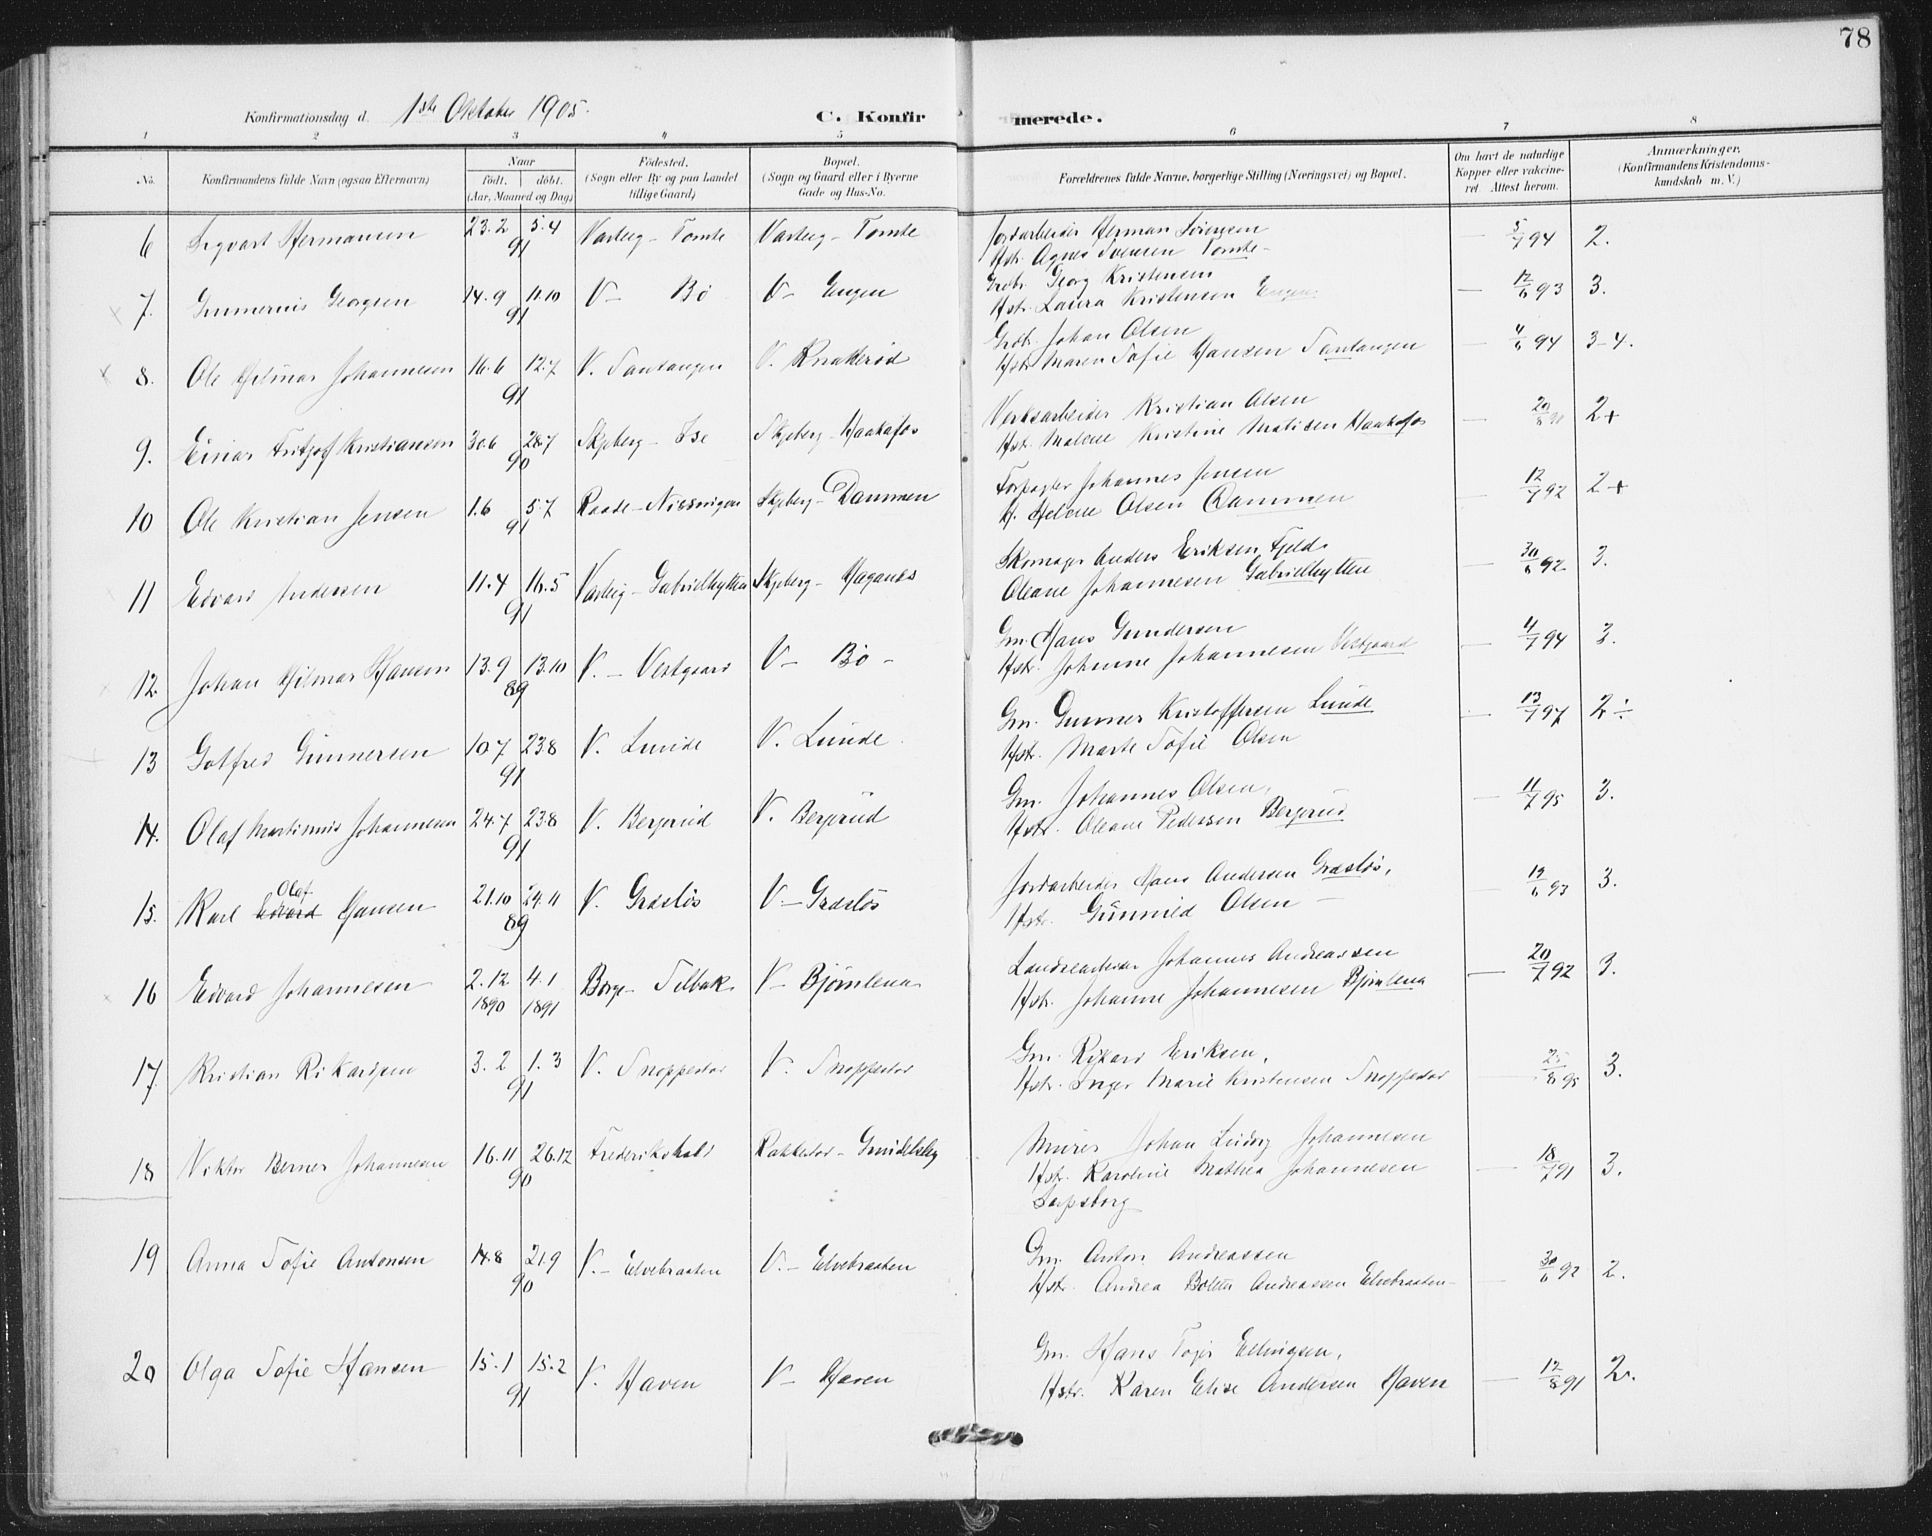 78
Konfirmationsdag d. 1ste Oktober 1905.
C. Konfirmerede.
1 2 3 4 5 6 7 8
No. Konfirmandens fulde Navn (ogsaa Efternavn) Naar født. døbt. (Aar, Maaned og Dag) Fødested. (Sogn eller By og paa Landet tillige Gaard) Bopæl. (Sogn og Gaard eller i Byerne Gade og Hus-No. Forældrenes fulde Navne, borgerlige Stilling (Næringsvei) og Bopæl. Om havt de naturlige Kopper eller vakcineret. Attest herom. Anmærkninger. (Konfirmandens Kristendomskundskab m. V.)
6 Sigvart Hermansen 23.2 5.4 91 Varteig - Tomte Varteig - Tomte Jordarbeider Herman Sørensen — 5/7 94 2.
Hstr. Agnes Svensen Tomte -
7. Gunnerius Georgsen 14.9 11.10 91 V - Bø V - Engen Grdbr. Georg Kristensen — 12/6 93 3.
Hstr. Laura Kristensen Engen
8. Ole Hilmar Johannesen 16.6 12.7 91 V. V. Knatterød Grdb. Johan Olsen — 4/6 94 3-4.
Hstr. Maren Sofie Hansen
9. Einar Fritjof Kristiansen 30.6 28.7 90 Skjeberg - Ise Skjeberg - Haakafos Verksarbeider Kristian Olsen — 2+
Hstr. Malene Kristine Matisen Haakafos
10 Ole Kristian Jensen 1.6 5.7 91 Raade - Skjeberg - Dammen Forpagter Johannes Jensen — 12/7 92 2+
H. Helene Olsen Dammen
11 Edvard Andersen 11.4 16.5 91 Varteig - Gabrielhytten Skjeberg - Haganes Skomager Anders Eriksen Fjeld — 30/6 92 3.
Oleane Johannesen Gabrielhytten
12. Johan Hilmar Hansen 13.9 13.10 89 V. - Vestgaard V - Bø - Gm. Hans Gundersen — 4/7 94 3.
Hstr. Johanne Johannesen Vestgaard
13 Gotfred Gunnersen 10.7 23.8 91 V. Lunde V. Lunde. Gm. Gunner Kristoffersen Lunde — 13/7 97 2÷
Hstr. Marte Sofie Olsen
14. Olaf Martinius Johannesen 24.7 23.8 91 V. Bergerud V. Bergerud Gm. Johannes Olsen, — 11/7 95 3.
Hstr. Oleane Pedersen Bergerud
15. Karl Edvard Olaf Hansen 21.10 24.11 89 V. Græsløs V - Græsløs Jordarbeider Hans Andersen Græsløs, — 19/6 93 3.
Hstr. Gunnild Olsen —
16 Edvard Johannesen 2.12 1890 4.1 1891 Borge - Selbak V - Bjørnlena Johannes Andreassen — 20/7 92 3.
Hstr. Johanne Johannesen Bjørnlena
17. Kristian Rikardsen 3.2 1.3 91 V. Snoppestad V. Snoppestad Gm. Rikard Eriksen, — 95 3.
Hstr. Inger Marie Kristensen Snoppestad
18 Viktor Berner Johannesen 16.11 26.12 90 Frederikshald Rakkestad - Murer Johan Ludvig Johannesen — 18/7 91 3.
Hstr. Karoline Mathea Johannesen
Sarpsborg
19 Anna Sofie Antonsen 14.8 21.9 90 V. - Elvebraaten V. - Elvebraaten Gm. Anton Andreassen — 30/6 92 2.
Hstr. Andrea Bolette Andreassen Elvebraaten -
20 Olga Sofie Hansen 15.1 15.2 91 V. Haven V - Haven Gm. Hans Ellingsen, — 12/8 91 2.
Hstr. Karen Elise Andersen Haven